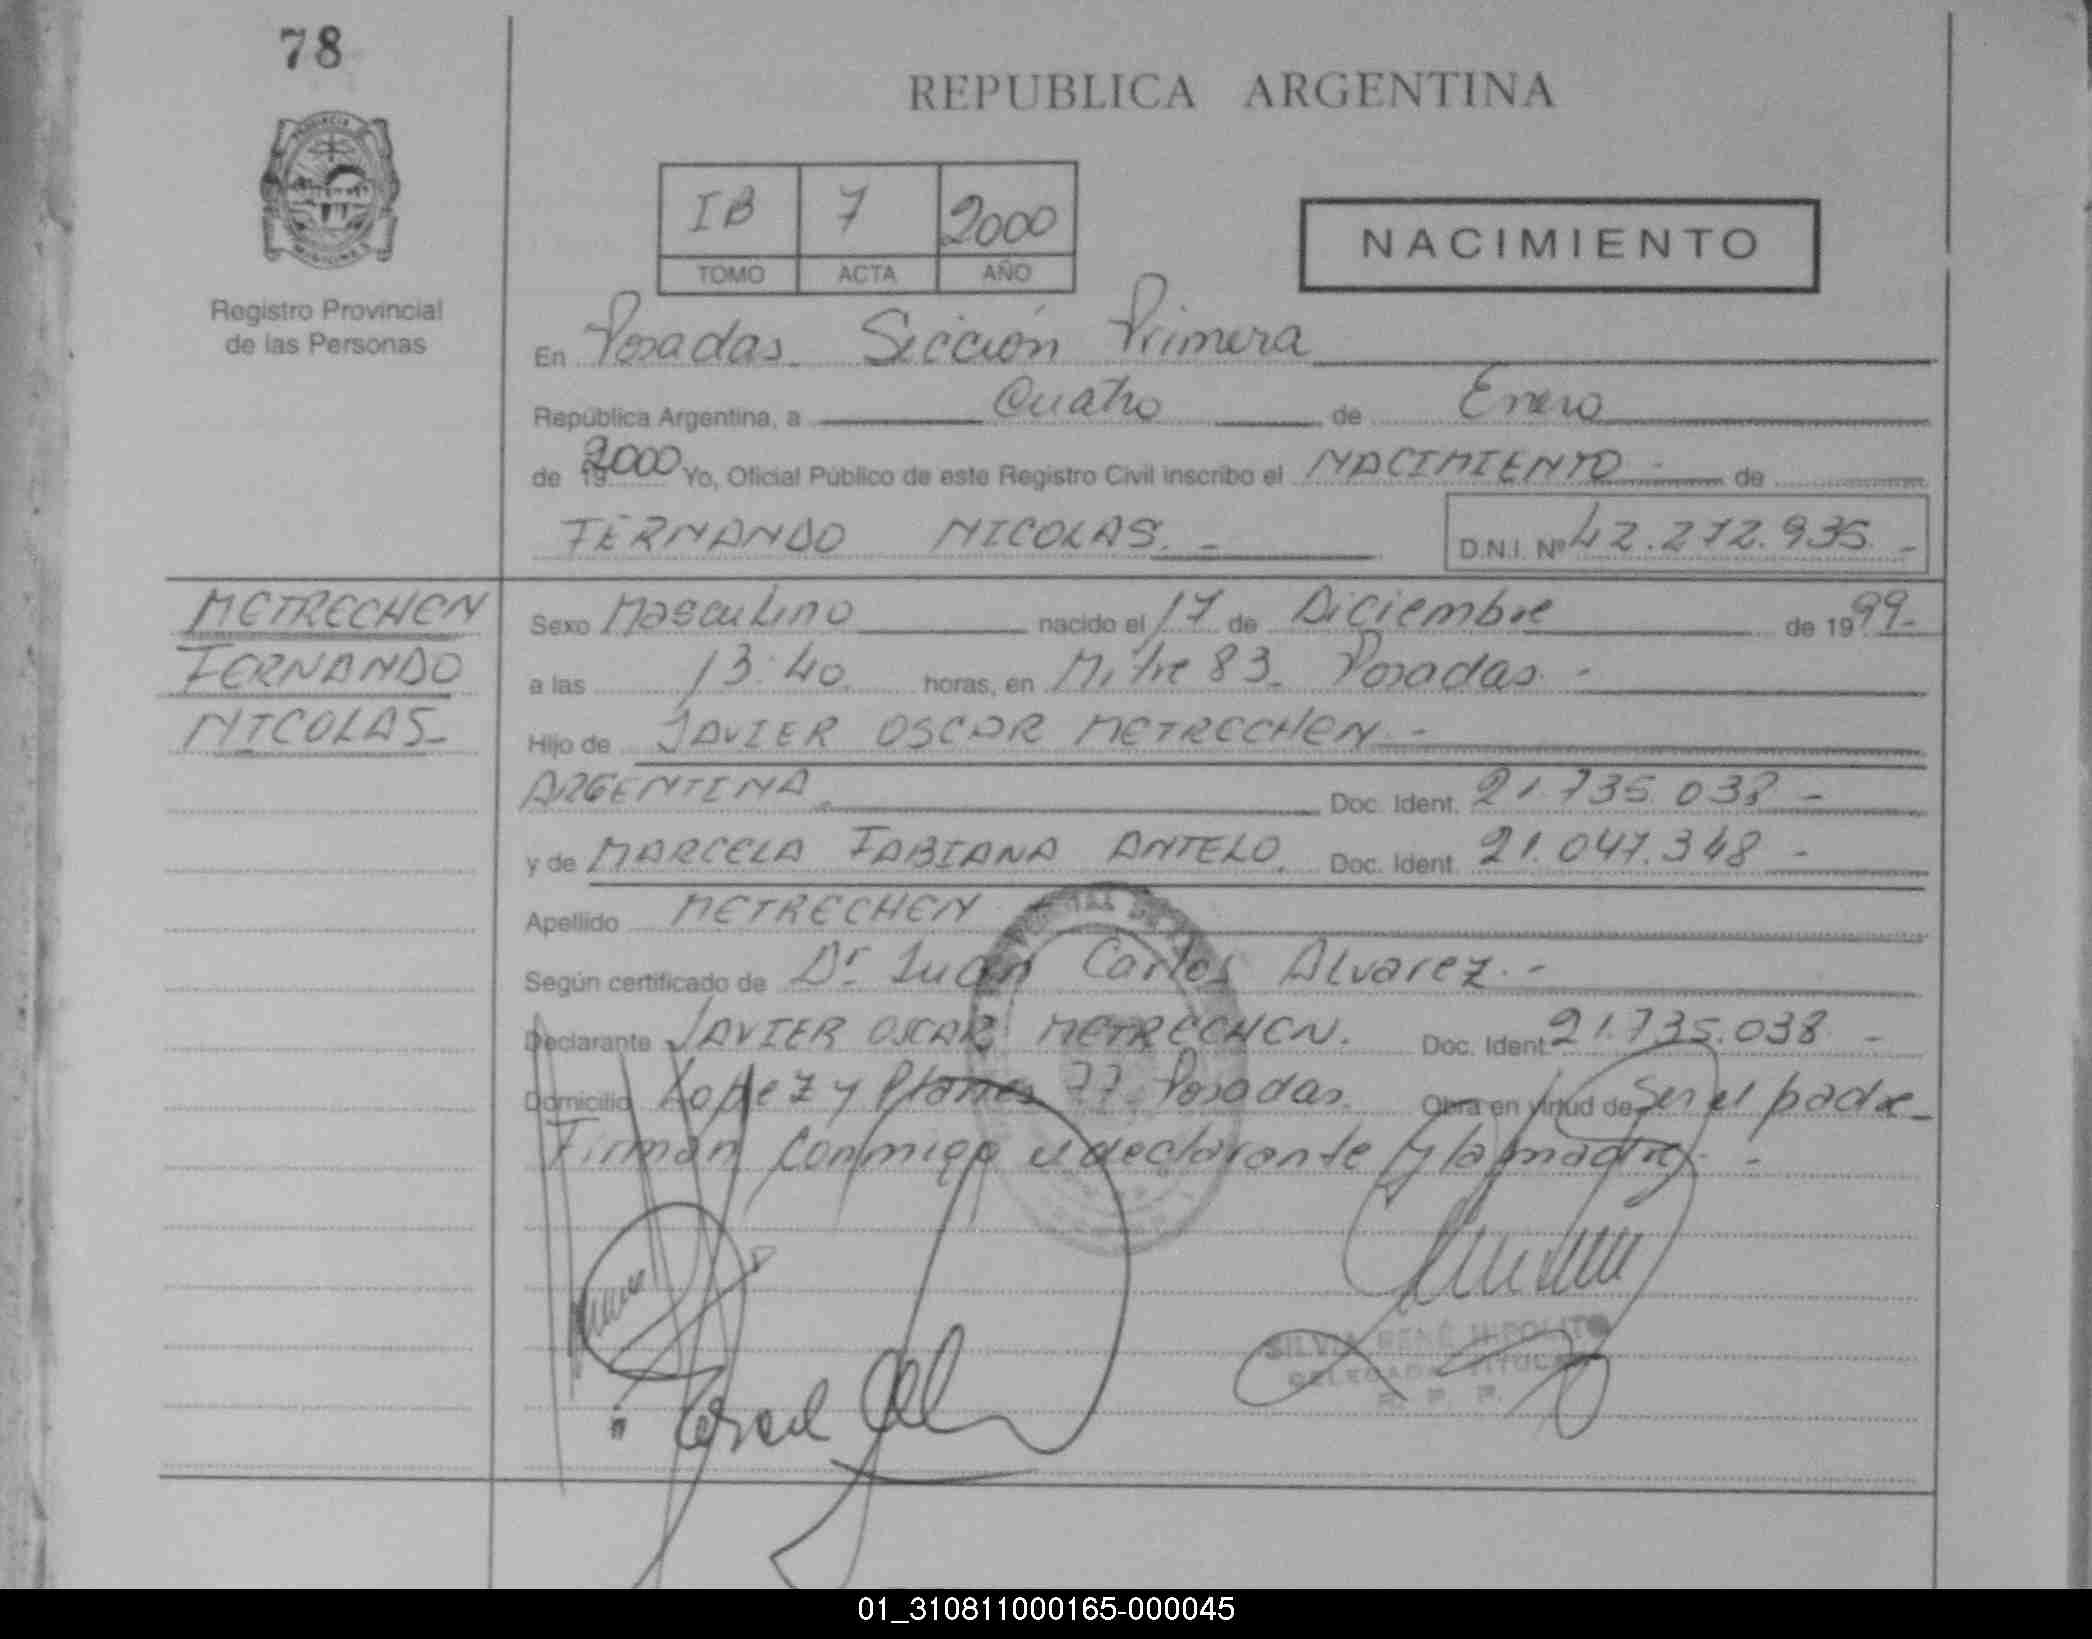 78
REPUBLICA ARGENTINA
IB 7 2000
TOMO ACTA AÑO
NACIMIENTO
Registro Provincial
de las Personas
En Posadas. Sección Primera
República Argentina, a Cuatro de Enero
de 19 2000 Yo, Oficial Público de este Registro Civil inscribo el NACIMIENTO de
FERNANDO NICOLAS. - D.N.I. Nº 42.272.935. -
METRECHEN
FERNANDO
NICOLAS
Sexo Masculino nacido el 17 de Diciembre de 1999.
a las 13:40. horas, en Mitre 83. Posadas. -
Hijo de JAVIER OSCAR METRECHEN. -
ARGENTINA Doc. Ident. 21.735.038 -
y de MARCELA FABIANA ANTELO. Doc. Ident. 21.047.348 -
Apellido METRECHEN
Según certificado de Dr. Juan Carlos Alvarez. -
Declarante JAVIER OSCAR METRECHEN. Doc. Ident. 21.735.038 -
Domicilio Lopez y Planes 77. Posadas. Obra en virtud de Ser el padre
Firman conmigo el declarante y la madre. -
SILVIA RENÉ HIPOLITO
DELEGADA TITULAR
R. P. P.
01_310811000165-000045